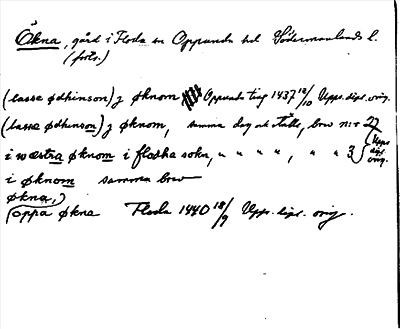 Ökna, gård i Floda sn Oppunda hd Södermanlands l.
(forts.)
(lasse ødhinson) j øknom Oppunda ting 1437 12/10 Upps. dipl. orig.
(lasse ødhinson) j øknom, samma dag och ställe, brev nr 27
i wæstra øknom i floska sokn, " " " " , " " 3 } Upps. dipl. orig.
i øknom samma brev
økna,
oppa økna Floda 1440 18/9 Upps. dipl. orig.